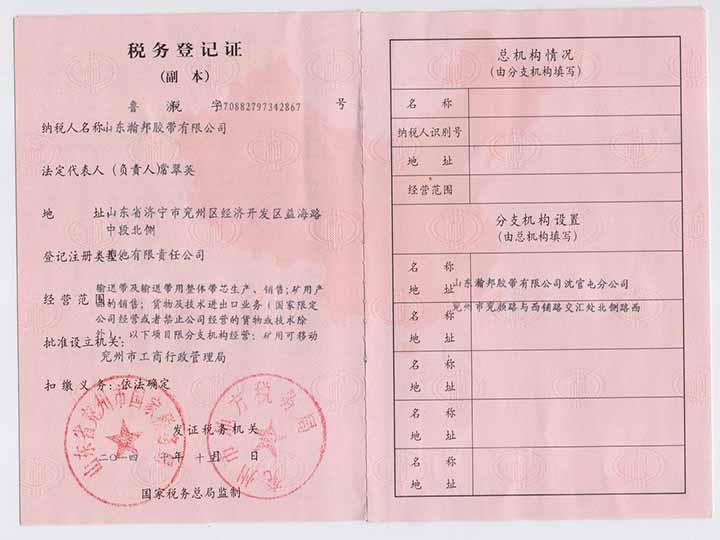 税务登记证
(副本)
鲁 税 字370882797342867 号
纳税人名称山东瀚邦胶带有限公司
法定代表人(负责人)常翠英
地 址山东省济宁市兖州区经济开发区益海路
中段北侧
登记注册类型其他有限责任公司
输送带及输送带用整体带芯生产、销售;矿用产
经营范围品的销售;货物及技术进出口业务(国家限定
公司经营或者禁止公司经营的货物或技术除
外)。以下项目限分支机构经营:矿用可移动
批准设立机关:
兖州市工商行政管理局
扣缴义务:依法确定
发证税务机关
二〇一四 年十月 日
国家税务总局监制
总机构情况
(由分支机构填写)
名 称
纳税人识别号
地 址
经营范围
分支机构设置
(由总机构填写)
名 称
地 址
山东瀚邦胶带有限公司沈官屯分公司
名 称
兖州市兖颜路与西铺路交汇处北侧路西
地 址
名 称
地 址
名 称
地 址
名 称
地 址